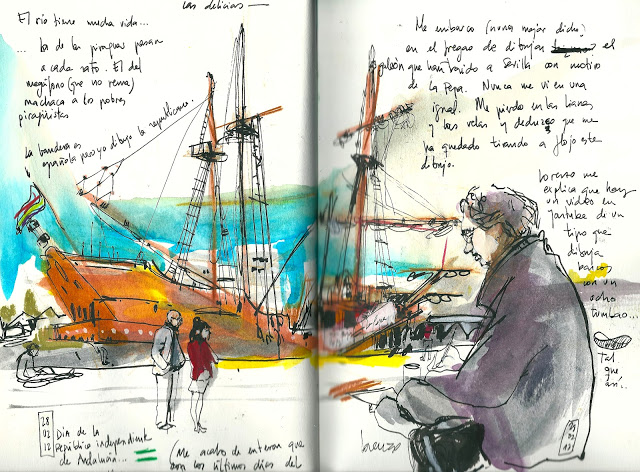 Las delicias —
El río tiene mucha vida...
... los de las piraguas pasan
a cada rato. El del
megáfono (que no rema)
machaca a los pobres
piragüistas
La bandera es
española pero yo dibujo la republicana.
Me embarco (nunca mejor dicho)
en el fregao de dibujar el
galeón que han traido a Sevilla con motivo
de la Pepa. Nunca me vi en una
igual. Me pierdo en las lianas
y las velas y deduzco que me
ha quedado tirando a flojo este
dibujo.
Lorenzo me
explica que hay
un video en
youtube de un
tipo que
dibuja
barcos
con un
ocho
tumbao...
Tal
que
así..
28
02
12
Dia de la
República independiente
de Andalucía...
(Me acabo de enterar que
son los últimos días del
Lorenzo